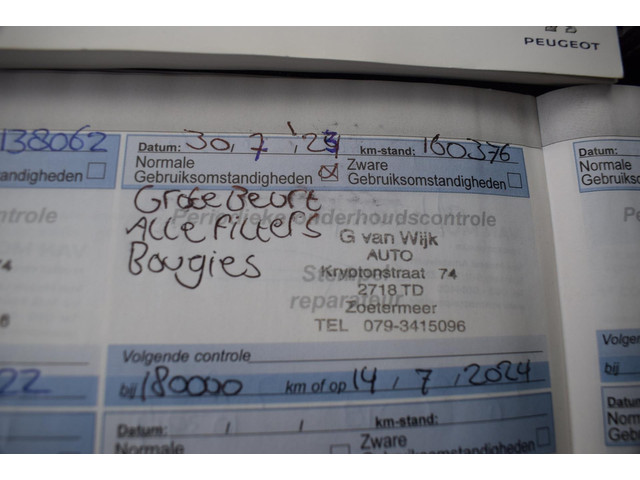 PEUGEOT
138062
Datum: 30, 7, '23 km-stand: 160376
Normale Gebruiksomstandigheden
Zware Gebruiksomstandigheden
standigheden
Grote Beurt
Alle Filters
Bougies
Periodieke onderhoudscontrole
G van Wijk
AUTO
Kryptonstraat 74
2718 TD
Zoetermeer
TEL 079-3415096
reparateur
ntrole
74
Volgende controle
bij 180000 km of op 14, 7, 2024
22
Datum: / / km-stand:
Normale
Zware
Gebruiksomstandigheden
Datum:
Normale
Gebruikso
Period
Volgen
bij
Datum:
Normale
Gebruik